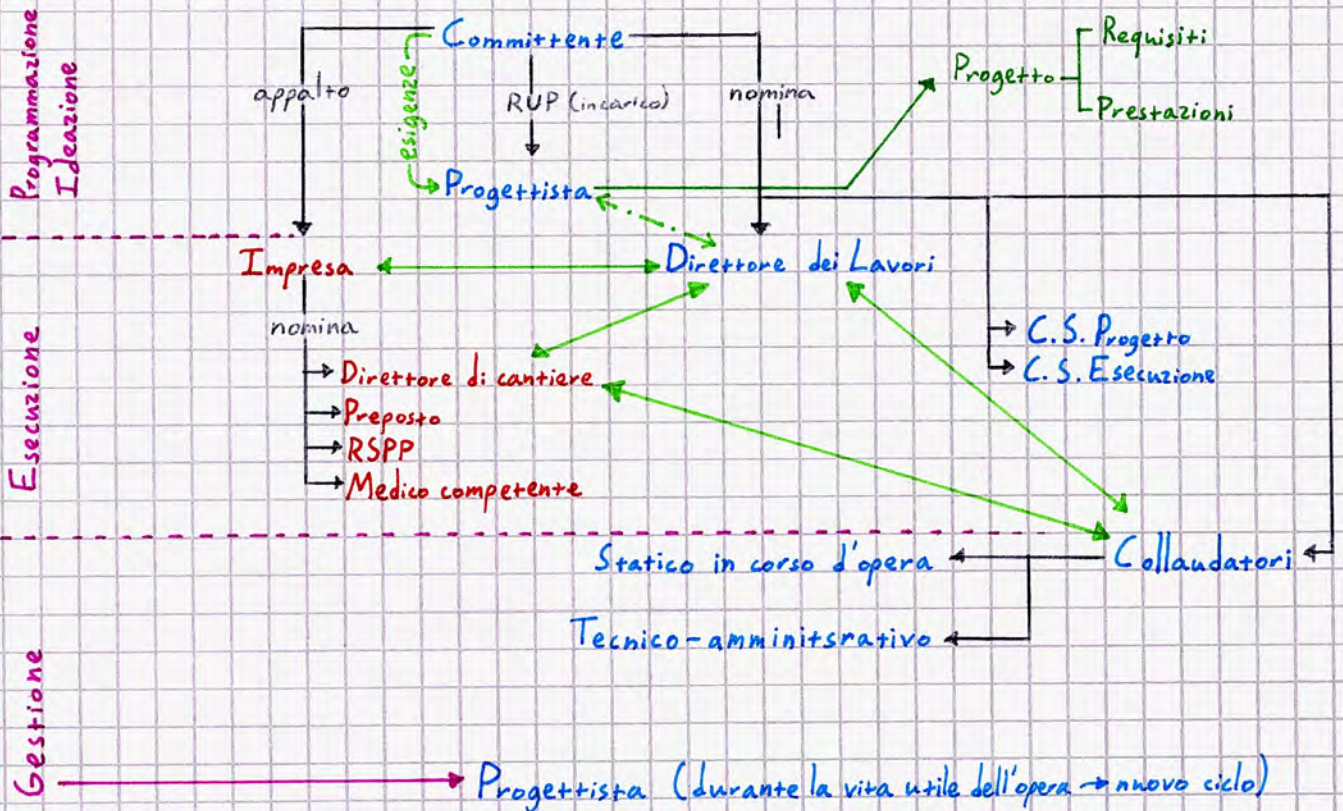 Programmazione
Ideazione
Committente
appalto
esigenze
RUP (incarico)
nomina
Progetto
Requisiti
Prestazioni
Progettista
Esecuzione
Impresa
Direttore dei Lavori
nomina
Direttore di cantiere
Preposto
RSPP
Medico competente
C.S. Progetto
C.S. Esecuzione
Statico in corso d'opera
Collaudatori
Tecnico-amminitsrativo
Gestione
Progettista (durante la vita utile dell'opera → nuovo ciclo)